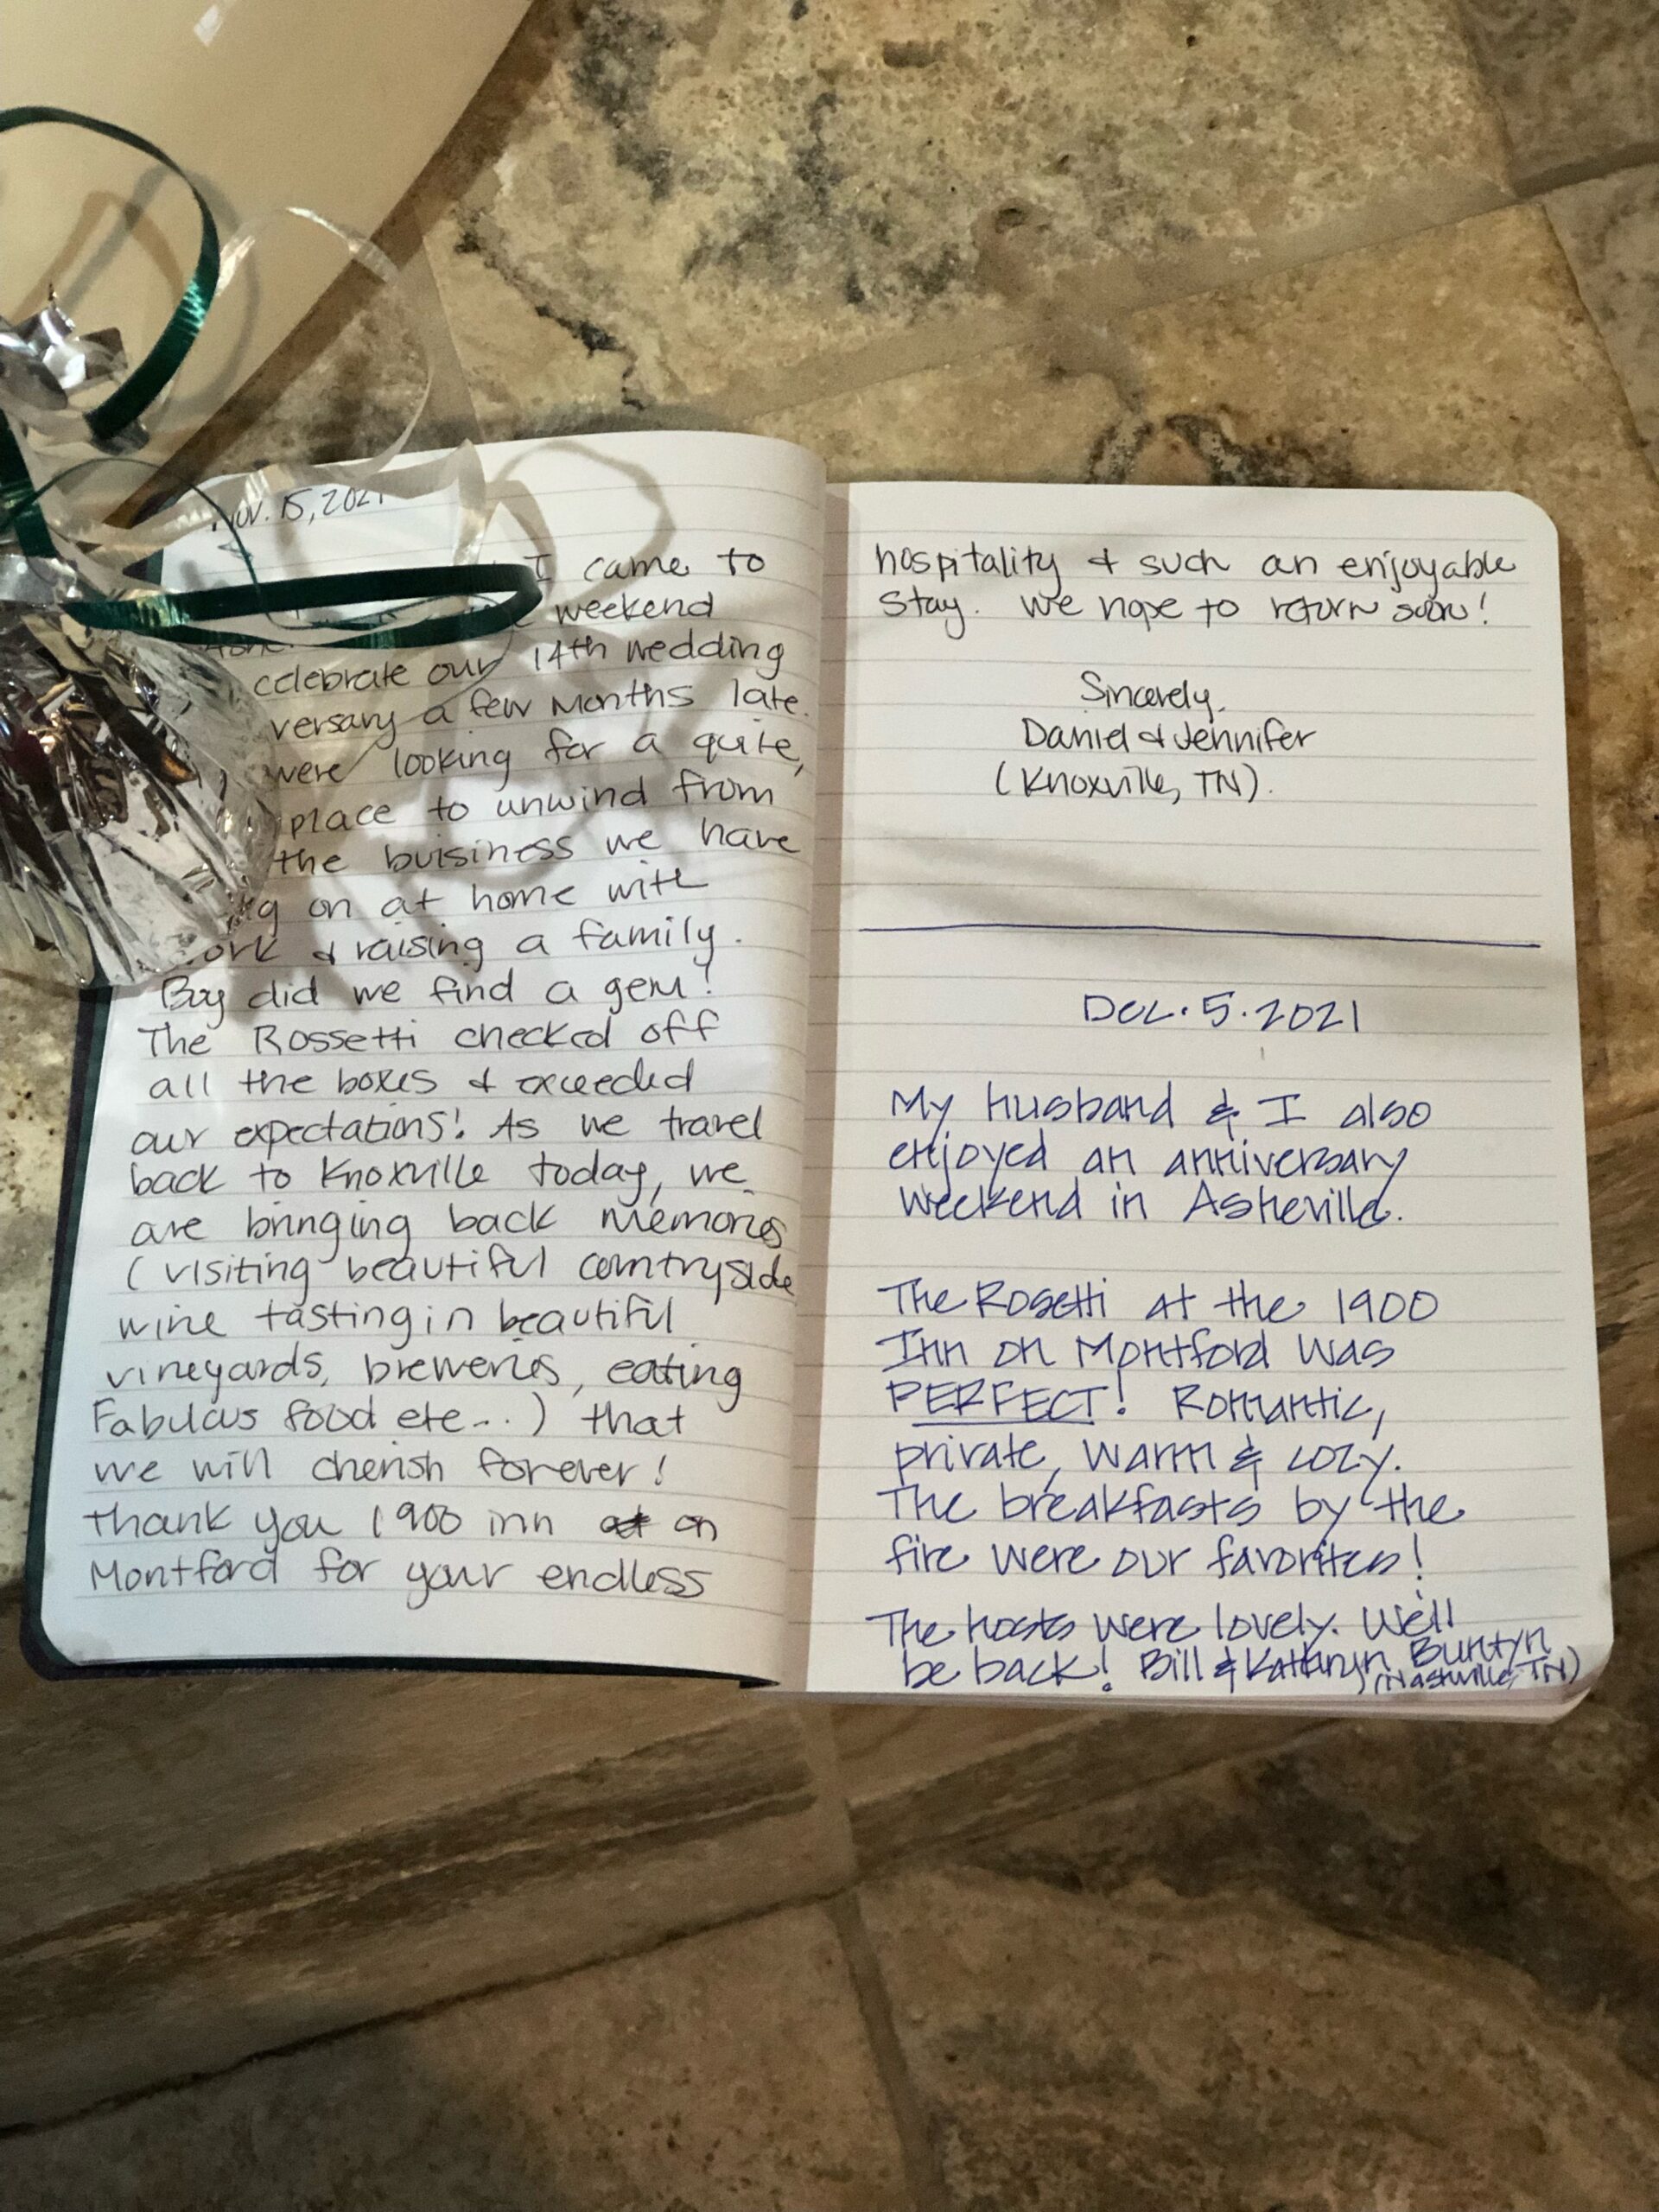 Nov. 15, 2021
I came to
weekend
celebrate our 14th wedding
versary a few months late.
were looking for a quite,
place to unwind from
the buisiness we have
g on at home with
ork & raising a family.
Boy did we find a gem!
The Rossetti checked off
all the boxes & exceeded
our expectations! As we travel
back to Knoxville today, we
are bringing back memories
(visiting beautiful countryside
wine tasting in beautiful
vineyards, breweries, eating
Fabulous food etc...) that
we will cherish forever!
Thank you 1900 inn at on
Montford for your endless
hospitality & such an enjoyable
stay. We hope to return soon!
Sincerely,
Daniel & Jennifer
(Knoxville, TN).
Dec. 5. 2021
My husband & I also
enjoyed an anniversary
weekend in Asheville.
The Rosetti at the 1900
Inn on Montford was
PERFECT! Romantic,
private, warm & cozy.
The breakfasts by the
fire were our favorites!
The hosts were lovely. We'll
be back! Bill & Kathryn Buntyn
(Nashville, TN)